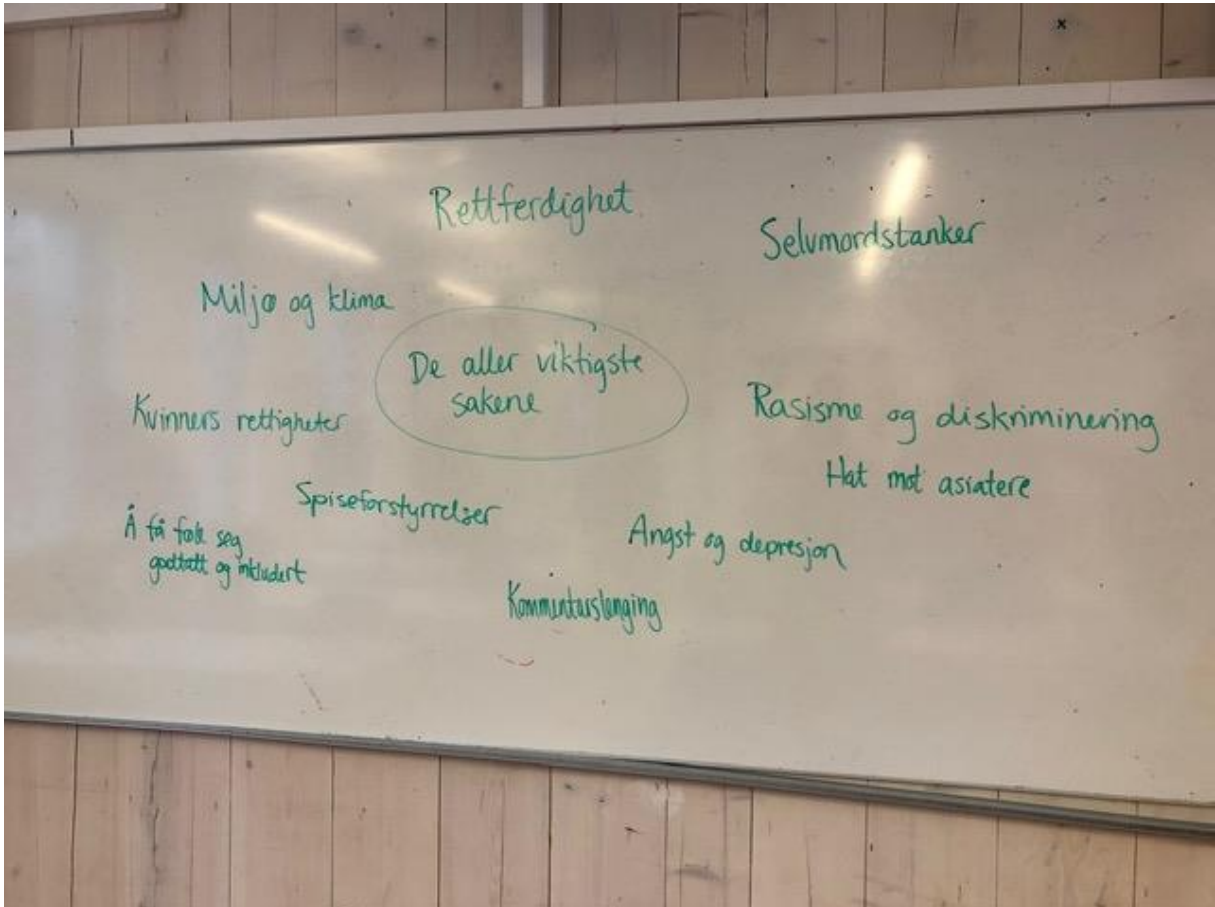 Rettferdighet
Selvmordstanker
Miljø og klima
De aller viktigste
sakene
Kvinners rettigheter
Rasisme og diskriminering
Hat mot asiatere
Spiseforstyrrelser
Å få folk seg
godtatt og inkludert
Angst og depresjon
Kommentarslenging